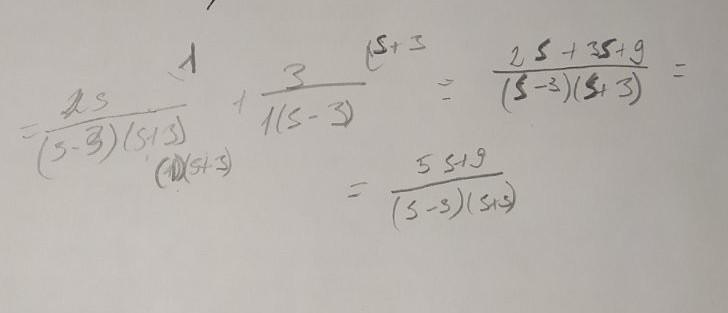 = 2s / (s-3)(s+3) \ 1 + 3 / 1(s-3) (s+3 = 2s+3s+9 / (s-3)(s+3) =
(s+3)
= 5s+9 / (s-3)(s+3)